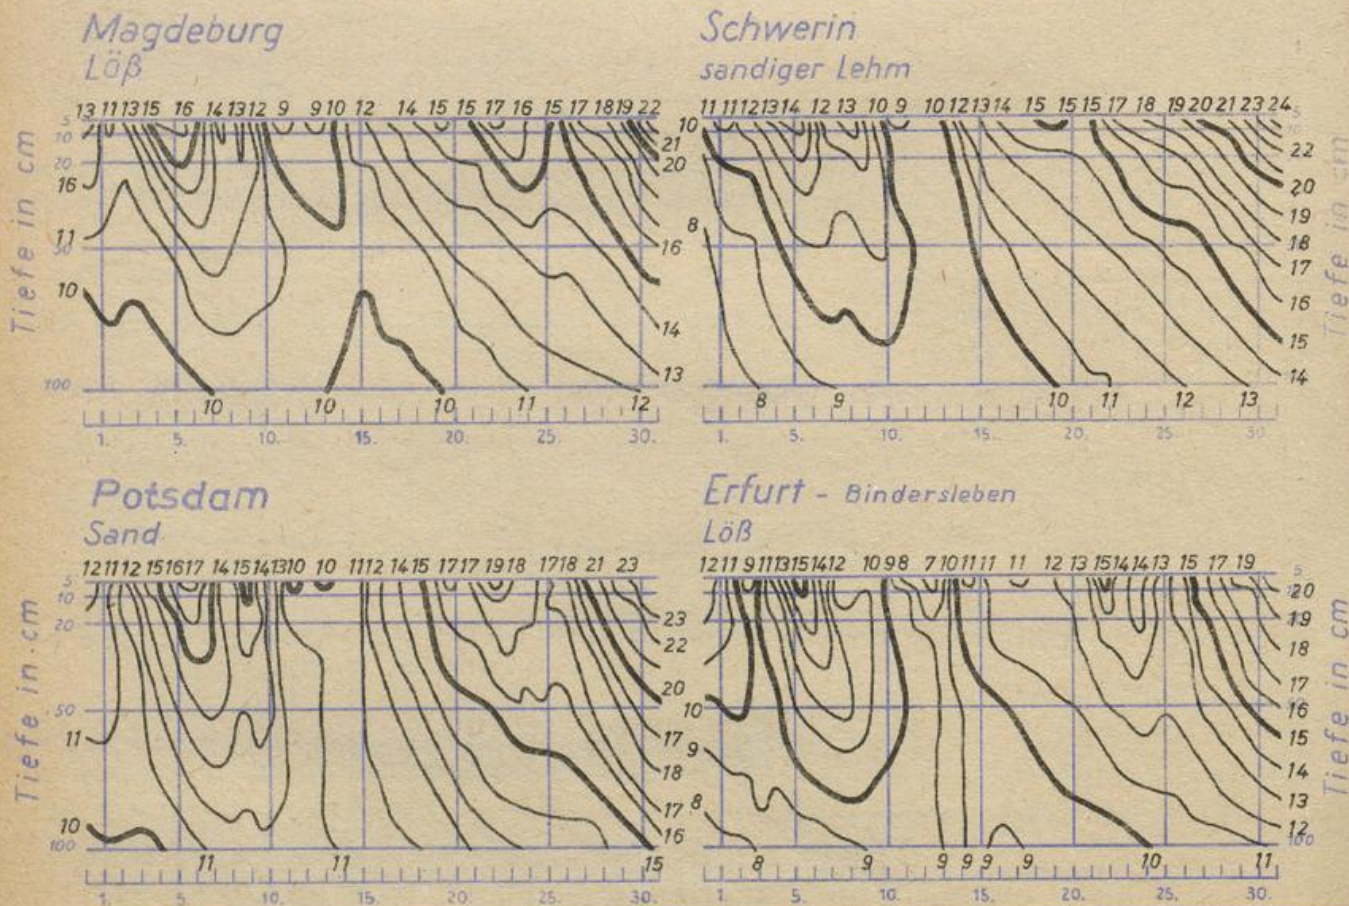 Magdeburg
Löß
13 11 13 15 16 14 13 12 9 9 10 12 14 15 15 17 16 15 17 18 19 22
5
10
20
50
100
16
11
10
21
20
16
14
13
10 10 10 11 12
1. 5. 10. 15. 20. 25. 30.
Tiefe in cm
Schwerin
sandiger Lehm
11 11 12 13 14 12 13 10 9 10 12 13 14 15 15 15 17 18 19 20 21 23 24
10
8
5
22
20
19
18
17
16
15
14
8 9 10 11 12 13
1. 5. 10. 15. 20. 25. 30
Tiefe in cm
Potsdam
Sand
12 11 12 15 16 17 14 15 14 13 10 10 11 12 14 15 17 17 19 18 17 18 21 23
5
10
20
50
100
11
10
23
22
20
17
18
17
16
11 11 15
1. 5. 10. 15. 20. 25. 30.
Tiefe in cm
Erfurt - Bindersleben
Löß
12 11 9 11 13 15 14 12 10 9 8 7 10 11 11 11 12 13 15 14 14 13 15 17 19
10
9
8
5
20
19
18
17
16
15
14
13
12
100
8 9 9 9 9 9 10 11
1. 5. 10. 15. 20. 25. 30.
Tiefe in cm